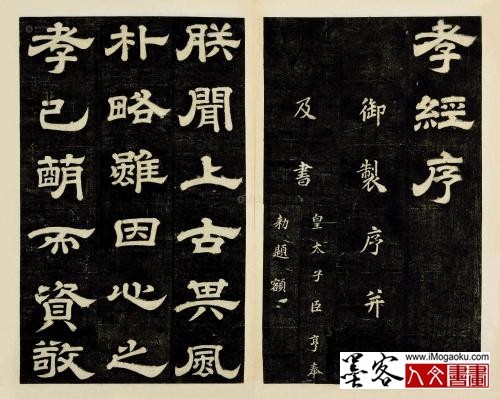 孝經序
御製序并
及書
皇太子臣亨奉
勑題額
朕聞上古其風
朴略雖因心之
孝已萌而資敬
墨客
www.iMogaoku.com
人文書畫